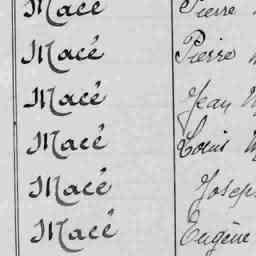 Macé Pierre
Macé Pierre
Macé Jean
Macé Louis
Macé Joseph
Macé Eugène